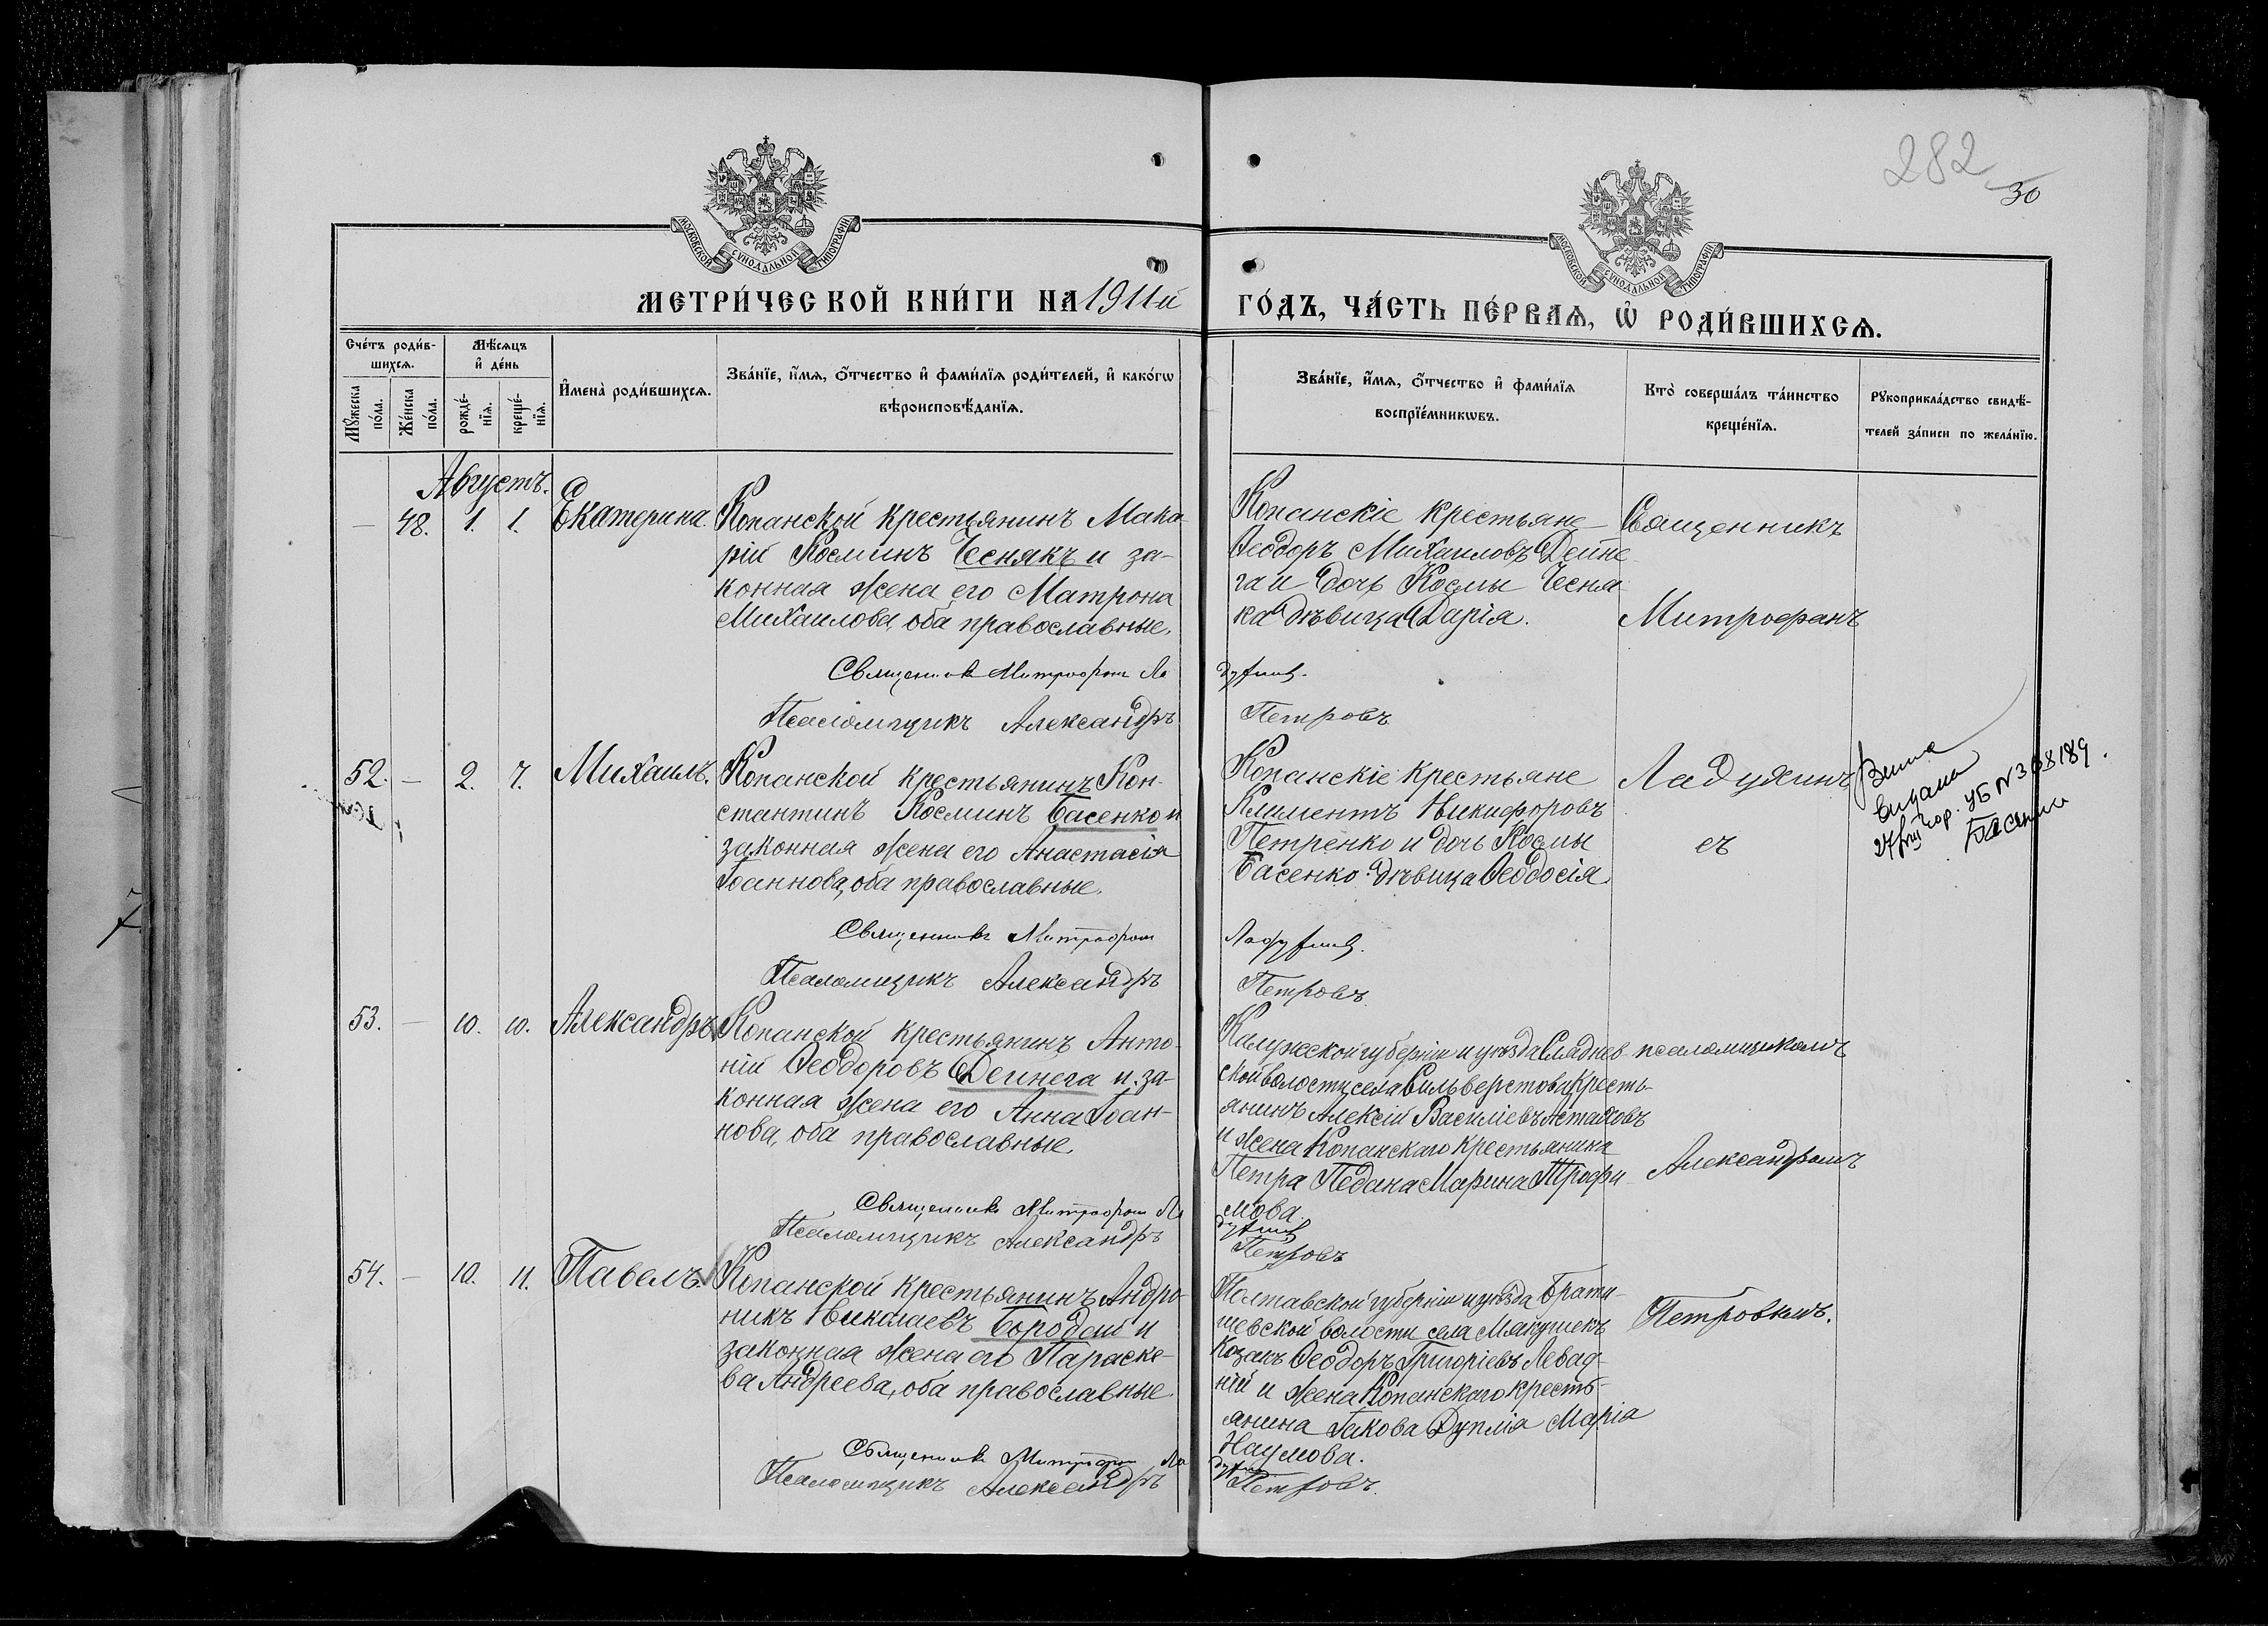 282
30
МОСКОВСКОЙ СУНОДАЛЬНОЙ ТИПОГРАФІИ
МОСКОВСКОЙ СУНОДАЛЬНОЙ ТИПОГРАФІИ
МЕТРИ́ЧЕСКОЙ КНИ́ГИ НА 1911й
ГО́ДЪ, ЧА́СТЬ ПЕ́РВАѦ, Ѡ҆ РОДИ́ВШИХСѦ.
Сче́тъ роди́в-
шихсѧ.
Мꙋ́жеска по́ла.
Же́нска по́ла.
Мѣ́сѧцъ
и҆ де́нь
рожде́-нїѧ.
креще́-нїѧ.
И҆мена̀ роди́вшихсѧ.
Зва́нїе, и҆́мѧ, ѻ҆́тчество и҆ фами́лїѧ роди́телей, и҆ како́гѡ
вѣроисповѣ́данїѧ.
Зва́нїе, и҆́мѧ, ѻ҆́тчество и҆ фами́лїѧ
воспрїе́мникѡвъ.
Кто̀ соверша́лъ та́инство
креще́нїѧ.
Рꙋкоприкла́дство свидѣ́-
телей за́писи по жела́нїю.
Августъ.
— 48. 1. 1. Екатерина.
Копанской крестьянинъ Мака-
рій Косминъ Чеснякъ и за-
конная жена его Матрона
Михаилова, оба православные.
Копанскіе крестьяне
Ѳеодоръ Михаиловъ Дейне-
га и дочь Космы Чесня-
ка дѣвица Дарія.
Священникъ
Митрофанъ
Священникъ Митрофанъ Ла
духинъ.
Псаломщикъ Александръ
Петровъ
52. — 2. 7. Михаилъ.
Копанской крестьянинъ Кон-
стантинъ Косминъ Басенко и
законная жена его Анастасія
Іоаннова, оба православные.
Копанскіе крестьяне
Климентъ Никифоровъ
Петренко и дочь Космы
Басенко дѣвица Ѳеодосія.
Ладухинъ
съ
видана
УБ N 368189.
Священникъ Митрофанъ
Ладухинъ.
Псаломщикъ Александръ
Петровъ
53. — 10. 10. Александръ
Копанской крестьянинъ Анто-
ній Ѳеодоровъ Дейнега и за-
конная жена его Анна Іоан-
нова, оба православные.
Калужской губерніи и уѣзда Сляднев-
ской волости села Сильверстова кресть-
янинъ Алексій Василіевъ Астаховъ
и жена Копанскаго крестьянина
Петра Педана Марина Трофи-
мова.
псаломщикомъ
Александромъ
Священникъ Митрофанъ Ла
духинъ
Псаломщикъ Александръ
Петровъ
54. — 10. 11. Павелъ.
Копанской крестьянинъ Андро-
никъ Николаевъ Бородай и
законная жена его Параске-
ва Андреева, оба православные.
Полтавской губерніи и уѣзда Брати-
шевской волости села Мякушекъ
козакъ Ѳеодоръ Григоріевъ Левад-
ній и жена Копанскаго кресть-
янина Іакова Дуплія Марія
Наумова.
Петровымъ.
Священникъ Митрофанъ Ла
духинъ
Псаломщикъ Александръ
Петровъ.